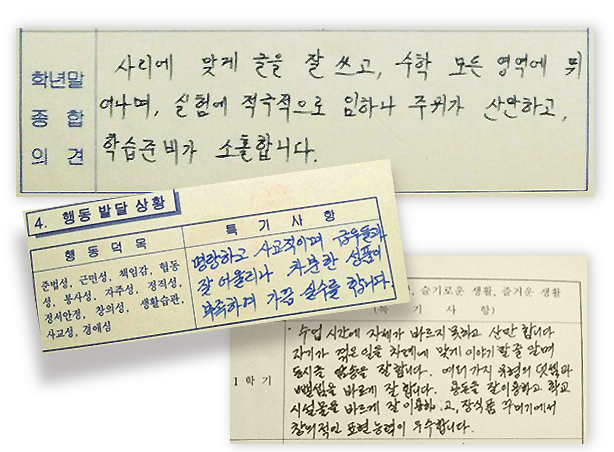 학년말
종 합
의 견
사리에 맞게 글을 잘 쓰고, 수학 모든 영역에 뛰
어나며, 실험에 적극적으로 임하나 주위가 산만하고,
학습준비가 소홀합니다.
4. 행동발달상황
행 동 덕 목
특 기 사 항
준법성, 근면성, 책임감, 협동
성, 봉사성, 자주성, 정직성,
정서안정, 창의성, 생활습관,
사교성, 경애심
명랑하고 사교적이며 급우들과
잘 어울리나 차분한 성품이
부족하며 가끔 실수를 합니다.
슬기로운 생활, 즐거운 생활
(특 기 사 항)
1학기
수업 시간에 자세가 바르지 못하고 산만합니다
자기가 겪은 일을 차례에 맞게 이야기 할 줄 알며
동시를 암송을 잘 합니다. 여러가지 유형의 덧셈과
뺄셈을 바르게 잘 합니다. 용돈을 잘 이용하고 학교
시설물을 바르게 잘 이용하고, 장식품 꾸미기에서
창의적인 표현능력이 우수합니다.